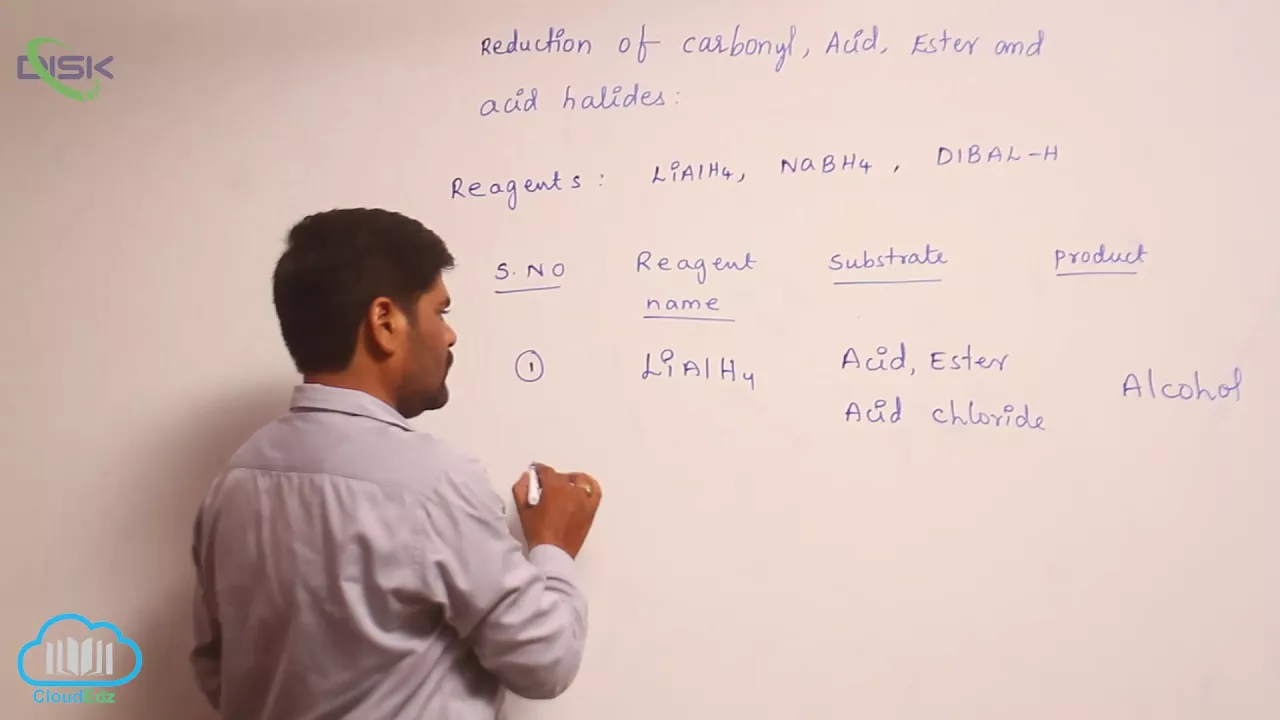 DISK
Reduction of carbonyl, Acid, Ester and
acid halides:
Reagents: LiAlH4, NaBH4, DIBAL-H
S.NO Reagent name Substrate Product
1 LiAlH4 Acid, Ester Acid chloride Alcohol
CloudEdz